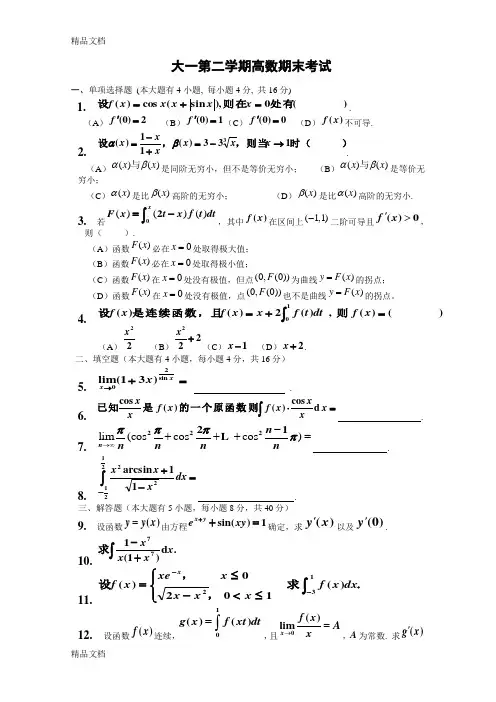 精品文档
大一第二学期高数期末考试
一、单项选择题 (本大题有4小题, 每小题4分, 共16分)
1. 设f(x) = cos x(x + |sin x|), 则在x = 0处有( ).
(A) f′(0) = 2 (B) f′(0) = 1 (C) f′(0) = 0 (D) f(x) 不可导.
2. 设α(x) = (1 − x)/(1 + x), β(x) = 3 − 3∛x, 则当x → 1时( ).
(A) α(x)与β(x) 是同阶无穷小,但不是等价无穷小; (B) α(x)与β(x) 是等价无
穷小;
(C) α(x) 是比 β(x) 高阶的无穷小; (D) β(x) 是比 α(x) 高阶的无穷小.
3. 若 F(x) = ∫₀ˣ (2t − x)f(t)dt ,其中 f(x) 在区间上 (−1,1) 二阶可导且 f′(x) > 0 ,
则( ).
(A)函数 F(x) 必在 x = 0 处取得极大值;
(B)函数 F(x) 必在 x = 0 处取得极小值;
(C)函数 F(x) 在 x = 0 处没有极值,但点 (0, F(0)) 为曲线 y = F(x) 的拐点;
(D)函数 F(x) 在 x = 0 处没有极值,点 (0, F(0)) 也不是曲线 y = F(x) 的拐点。
4. 设f(x)是连续函数,且f(x) = x + 2∫₀¹ f(t)dt , 则 f(x) = ( )
(A) x²/2 (B) x²/2 + 2 (C) x − 1 (D) x + 2.
二、填空题(本大题有4小题,每小题4分,共16分)
5. lim_{x→0} (1 + 3x)^{2/sin x} = .
6. 已知 cos x/x 是 f(x) 的一个原函数, 则∫ f(x)·cos x/x dx = .
7. lim_{n→∞} π/n (cos² π/n + cos² 2π/n + L + cos² (n−1)/n π) = .
8. ∫_{−1/2}^{1/2} (x² arcsin x + 1)/√(1 − x²) dx = .
三、解答题(本大题有5小题,每小题8分,共40分)
9. 设函数 y = y(x) 由方程 e^{x+y} + sin(xy) = 1 确定,求 y′(x) 以及 y′(0).
10. 求∫ (1 − x⁷)/(x(1 + x⁷)) dx.
11. 设 f(x) = { xe^{−x}, x ≤ 0; √(2x − x²), 0 < x ≤ 1 求∫_{−3}^{1} f(x)dx.
12. 设函数 f(x) 连续, g(x) = ∫₀¹ f(xt)dt ,且 lim_{x→0} f(x)/x = A ,A 为常数. 求 g′(x)
精品文档